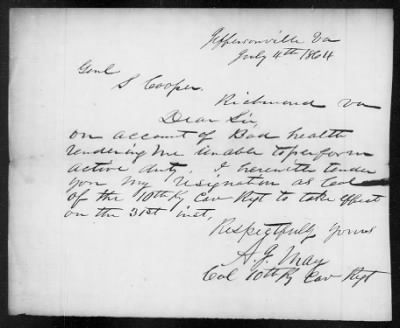 Jeffersonville Va
July 4th 1864
Genl
S Cooper.
Richmond Va
Dear Sir,
on account of Bad health
rendering me unable to perform
active duty. I herewith tender
you my resignation as Col
of the 10th Ky Cav Regt to take effect
on the 31st inst,
Respectfully yours
A. J. May
Col 10th Ky Cav Regt